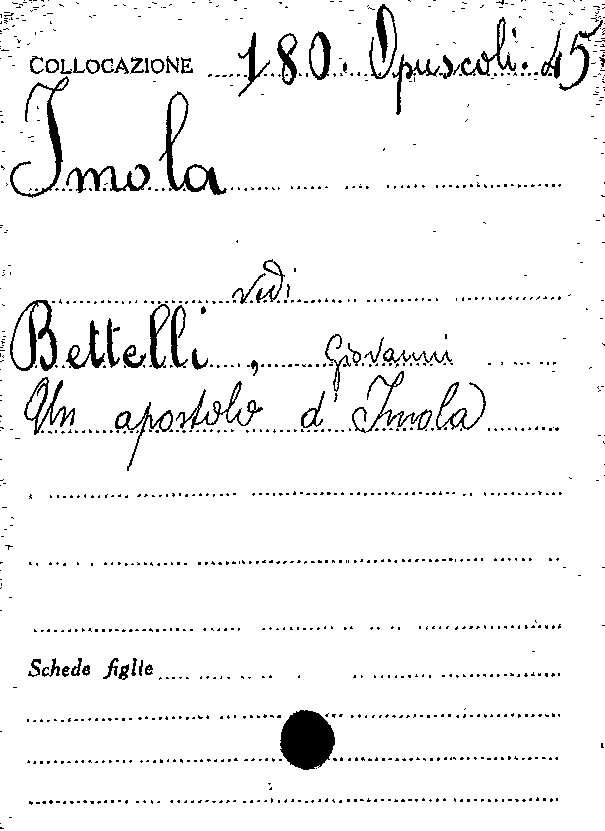 COLLOCAZIONE 180. Opuscoli. 45
Imola
vedi
Bettelli, Giovanni
Un apostolo d'Imola
Schede figlie